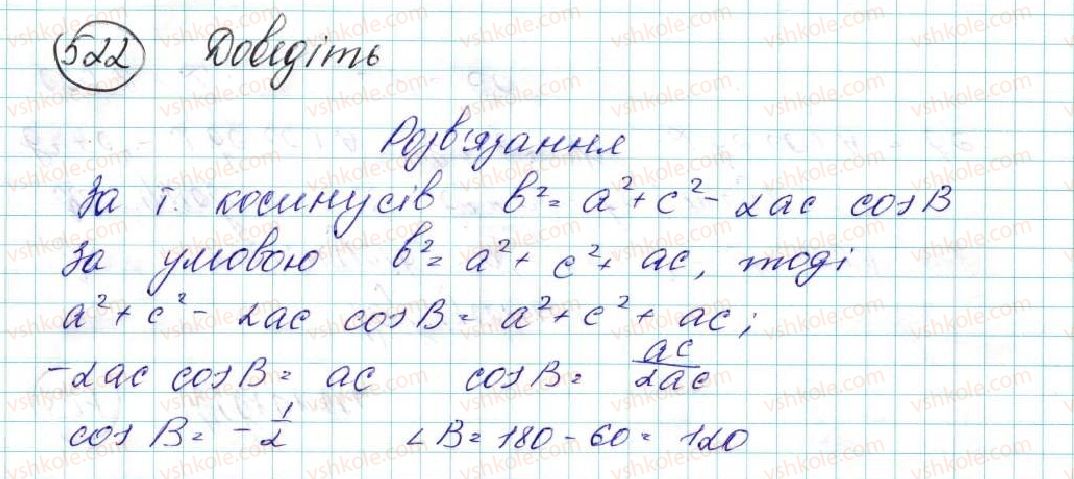 522 Доведіть
Розв'язання
За т. косинусів b² = a² + c² - 2ac cos B
За умовою b² = a² + c² + ac, тоді
a² + c² - 2ac cos B = a² + c² + ac;
-2ac cos B = ac cos B = ac/2ac
cos B = - 1/2 ∠B = 180 - 60 = 120
vshkole.com